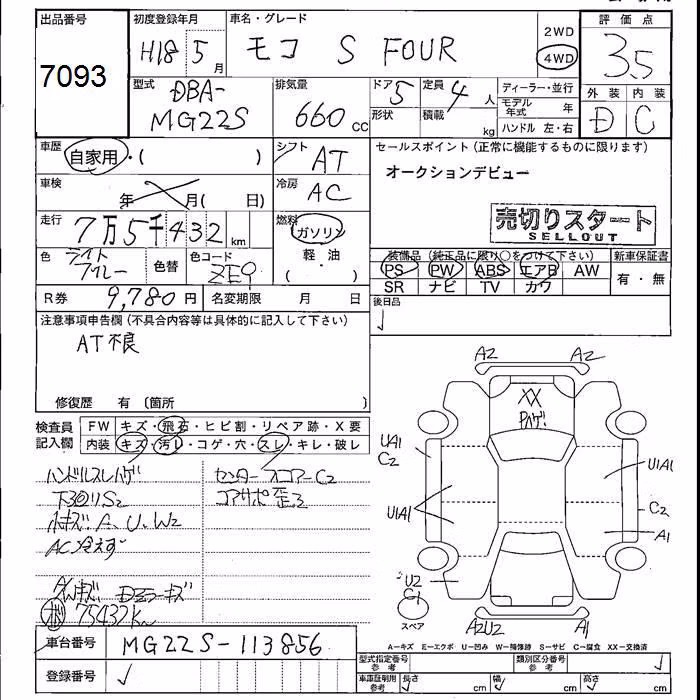 出品番号
7093
初度登録年月
H18 5 月
車名・グレード
モコ S FOUR
2WD
4WD
評価点
3.5
型式
DBA-
MG22S
排気量
660 cc
ドア 5
形状
定員 4 人
積載 kg
ディーラー・並行
モデル年式 年
ハンドル 左・右
外装 内装
D C
車歴
自家用・( )
シフト AT
セールスポイント(正常に機能するものに限ります)
オークションデビュー
車検 年 月( 日)
冷房 AC
売切りスタート
SELLOUT
走行 7万5千432 km
燃料
ガソリン
軽・油
( )
色 ライトブルー
色替
色コード
ZE9
装備品(純正品に限り○をつけて下さい)
PS PW ABS エアB AW
SR ナビ TV カワ
新車保証書
有・無
R券 9,780 円
名変期限 月 日
後日品
注意事項申告欄(不具合内容等は具体的に記入して下さい)
AT不良
修復歴 有〔箇所 〕
検査員記入欄
FW キズ・飛石・ヒビ割・リペア跡・X要
内装 キズ・汚れ・コゲ・穴・スレ・キレ・破レ
ハンドルスレハゲ
下回りS2
小キズ. A、U、W2
AC冷えず
75432Km
センター
C2
コアサポ歪み
A2 A2
XX
Pハゲ
UA1
C2
U1A1
U1A1
C2
A1
U2
C1
スペア
A2U2 A1
A-キズ E-エクボ U-凹み W-補修跡 S-サビ C-腐食 XX-交換済
車台番号 MG22S-113856
登録番号
型式指定番号 参考
類別区分番号 参考
車庫証明用 参考 長さ cm 幅 cm 高さ cm